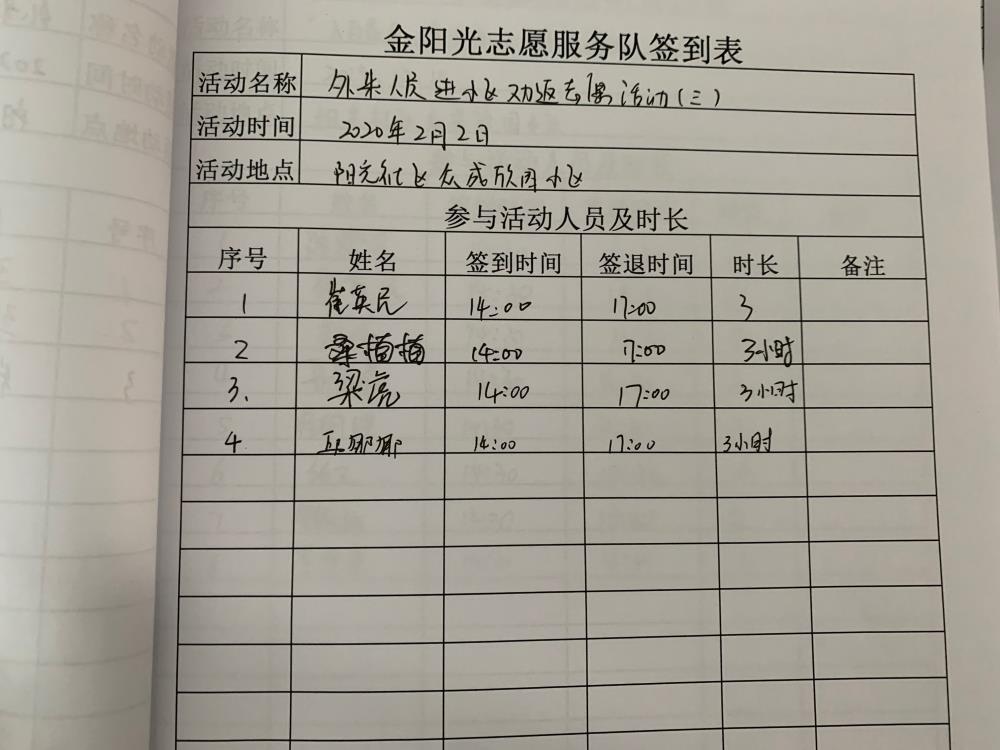 金阳光志愿服务队签到表
活动名称 外来人员进小区劝返志愿活动(三)
活动时间 2020年2月2日
活动地点 阳光社区众成欣园小区
参与活动人员及时长
序号 姓名 签到时间 签退时间 时长 备注
1 崔英民 14:00 17:00 3
2 桑植植 14:00 17:00 3小时
3. 梁亮 14:00 17:00 3小时
4 娜娜 14:00 17:00 3小时